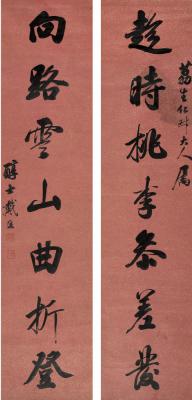 趁時桃李參差發
荔生仁兄大人屬
向路雲山曲折登
醇士戴熙